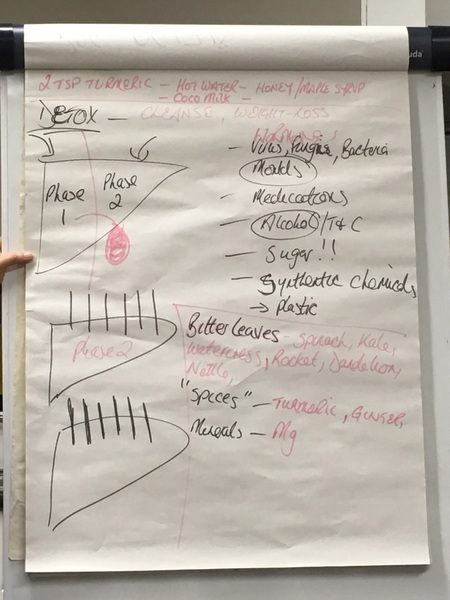 2 TSP TURMERIC – HOT WATER – HONEY/MAPLE SYRUP
– COCO MILK –
DETOX – CLEANSE, WEIGHT-LOSS
Hormones
– Virus, Fungus, Bacteria
Moulds
Phase 1
Phase 2
– Medications
– Alcohol/T&C
– Sugar!!
– Synthetic Chemicals
→ Plastic
Phase 2
Bitter leaves – Spinach, Kale,
Watercress, Rocket, Dandelion,
Nettle,
"Spices" – Turmeric, Ginger,
Minerals – Mg